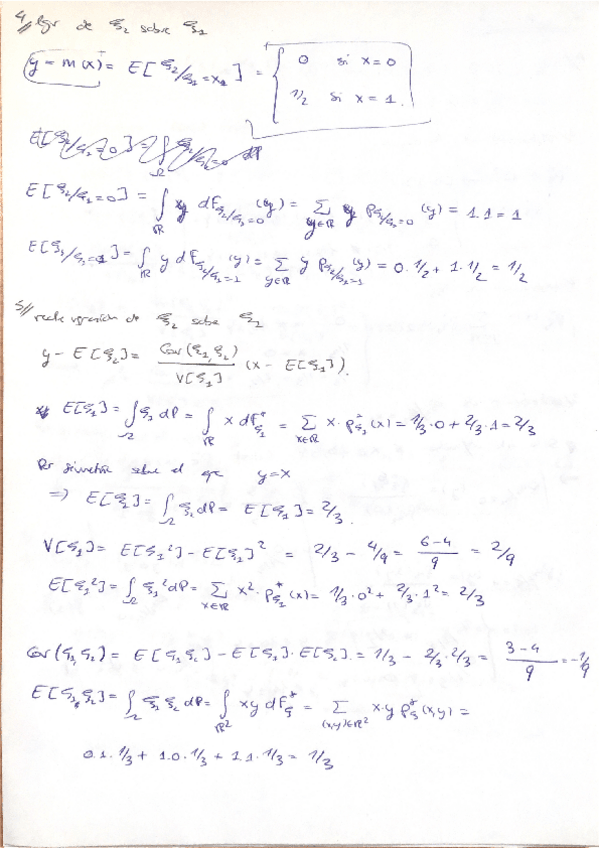 4// lgr de ξ₂ sobre ξ₁
y = m(x) = E[ξ₂/ξ₁=x₁] = { 0 si x=0
1/2 si x=1.
E[ξ₂/ξ₁=0] = ∫_Ω ξ₂/ξ₁=0 dP
E[ξ₂/ξ₁=0] = ∫_ℝ y dF_{ξ₂/ξ₁=0}(y) = Σ_{y∈ℝ} y P_{ξ₂/ξ₁=0}(y) = 1.1 = 1
E[ξ₂/ξ₁=1] = ∫_ℝ y dF_{ξ₂/ξ₁=1}(y) = Σ_{y∈ℝ} y P_{ξ₂/ξ₁=1}(y) = 0·1/2 + 1·1/2 = 1/2
5// recta regresión de ξ₂ sobre ξ₁
y - E[ξ₂] = Cov(ξ₁,ξ₂)/V[ξ₁] (x - E[ξ₁]).
E[ξ₁] = ∫_Ω ξ₁ dP = ∫_ℝ x dF⁺_{ξ₁} = Σ_{x∈ℝ} x·P⁺_{ξ₁}(x) = 1/3·0 + 2/3·1 = 2/3
Por simetría sobre el eje y=x
⇒ E[ξ₂] = ∫_Ω ξ₂ dP = E[ξ₁] = 2/3.
V[ξ₁] = E[ξ₁²] - E[ξ₁]² = 2/3 - 4/9 = (6-4)/9 = 2/9
E[ξ₁²] = ∫_Ω ξ₁² dP = Σ_{x∈ℝ} x²·P⁺_{ξ₁}(x) = 1/3·0² + 2/3·1² = 2/3
Cov(ξ₁,ξ₂) = E[ξ₁ξ₂] - E[ξ₁]·E[ξ₂] = 1/3 - 2/3·2/3 = (3-4)/9 = -1/9
E[ξ₁ξ₂] = ∫_Ω ξ₁ξ₂ dP = ∫_ℝ² xy dF⁺_ξ = Σ_{(x,y)∈ℝ²} x·y P⁺_ξ(x,y) =
0.1.1/3 + 1.0.1/3 + 1.1.1/3 = 1/3